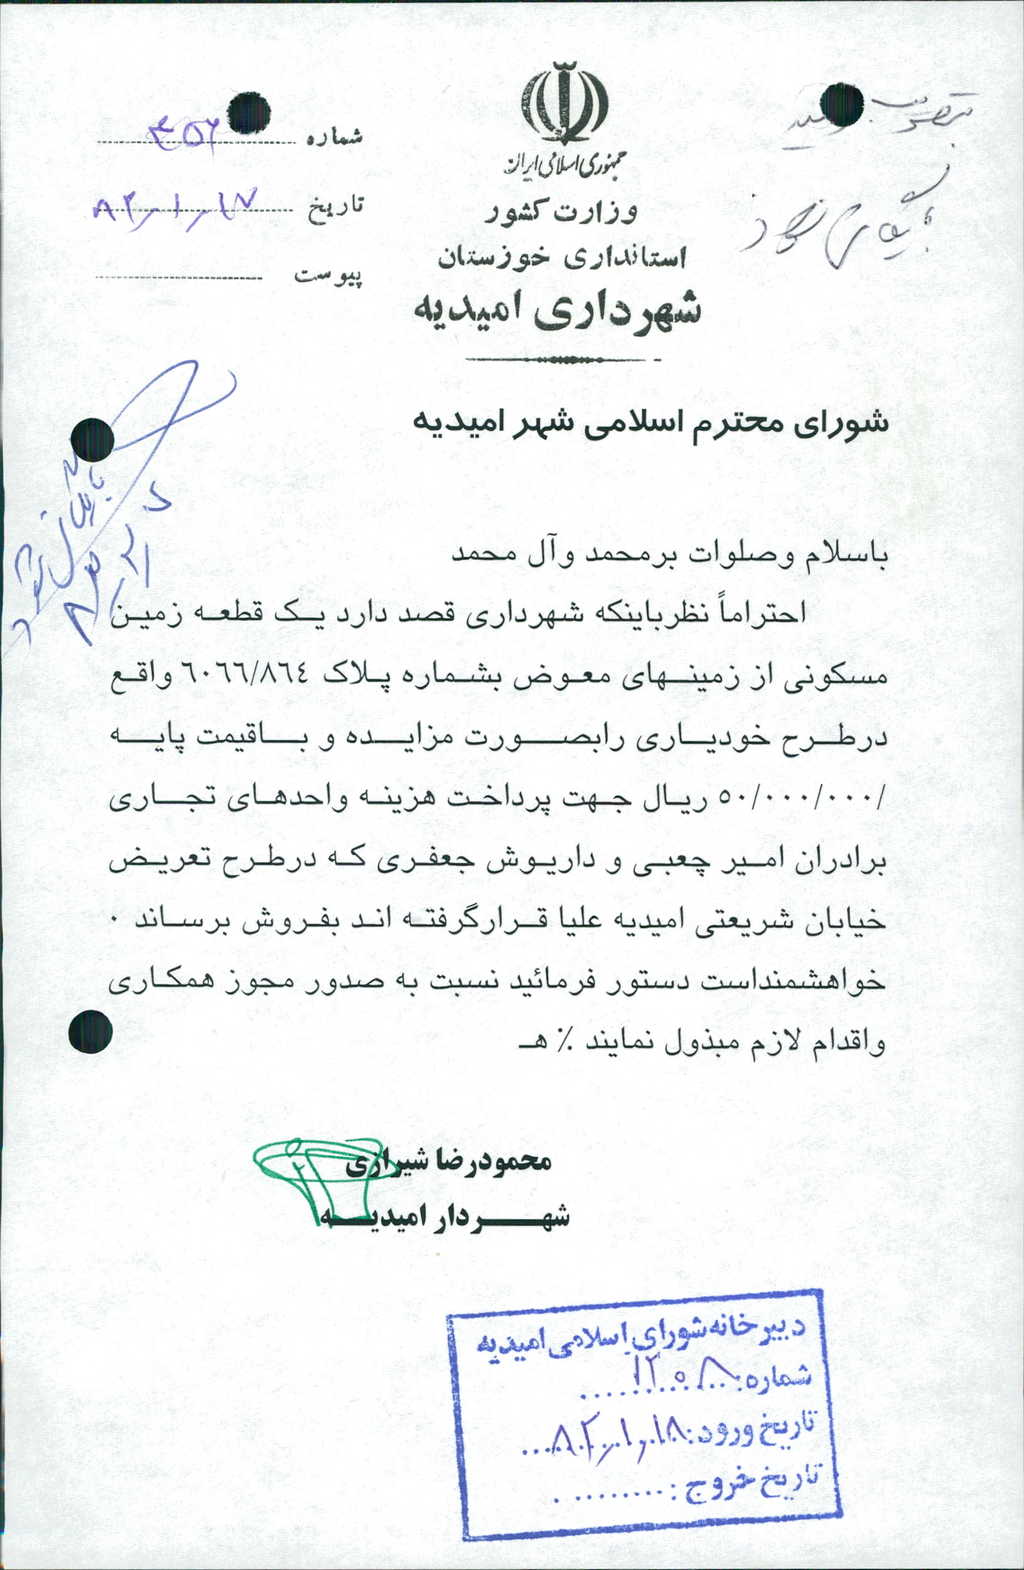 جمهوری اسلامی ایران
وزارت کشور
استانداری خوزستان
شهرداری امیدیه
شماره ۴۵۶
تاریخ ۸۲/۱/۱۷
پیوست
شورای محترم اسلامی شهر امیدیه
باسلام وصلوات برمحمد وآل محمد
احتراماً نظرباینکه شهرداری قصد دارد یک قطعه زمین
مسکونی از زمینهای معوض بشماره پلاک ٦٠٦٦/٨٦٤ واقع
درطرح خودیاری رابصورت مزایده و باقیمت پایه
/٥٠/٠٠٠/٠٠٠ ریال جهت پرداخت هزینه واحدهای تجاری
برادران امیر چعبی و داریوش جعفری که درطرح تعریض
خیابان شریعتی امیدیه علیا قرارگرفته اند بفروش برساند ٠
خواهشمنداست دستور فرمائید نسبت به صدور مجوز همکاری
واقدام لازم مبذول نمایند ٪ هـ
محمودرضا شیرازی
شهردار امیدیه
بایگانی شود
دبیرخانه شورای اسلامی امیدیه
شماره: ۱۲۰۸
تاریخ ورود: ۸۲/۱/۱۸
تاریخ خروج: